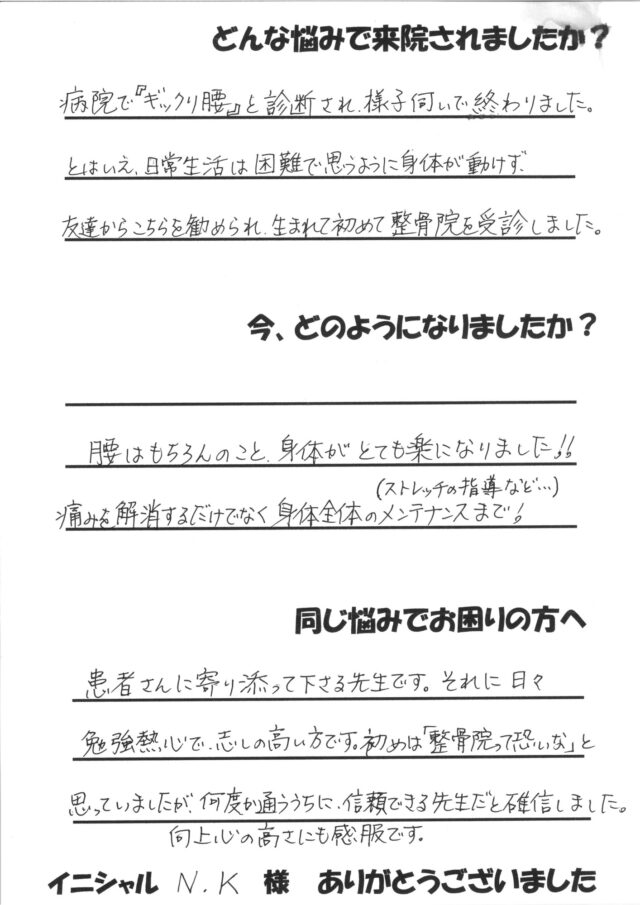 どんな悩みで来院されましたか？
病院で『ギックリ腰』と診断され、様子伺いで終わりました。
とはいえ、日常生活は困難で思うように身体が動けず、
友達からこちらを勧められ、生まれて初めて整骨院を受診しました。
今、どのようになりましたか？
腰はもちろんのこと、身体がとても楽になりました!!
(ストレッチの指導など…)
痛みを解消するだけでなく身体全体のメンテナンスまで!
同じ悩みでお困りの方へ
患者さんに寄り添って下さる先生です。それに日々
勉強熱心で、志しの高い方です。初めは「整骨院って恐いな」と
思っていましたが、何度か通ううちに、信頼できる先生だと確信しました。
向上心の高さにも感服です。
イニシャル N.K 様 ありがとうございました